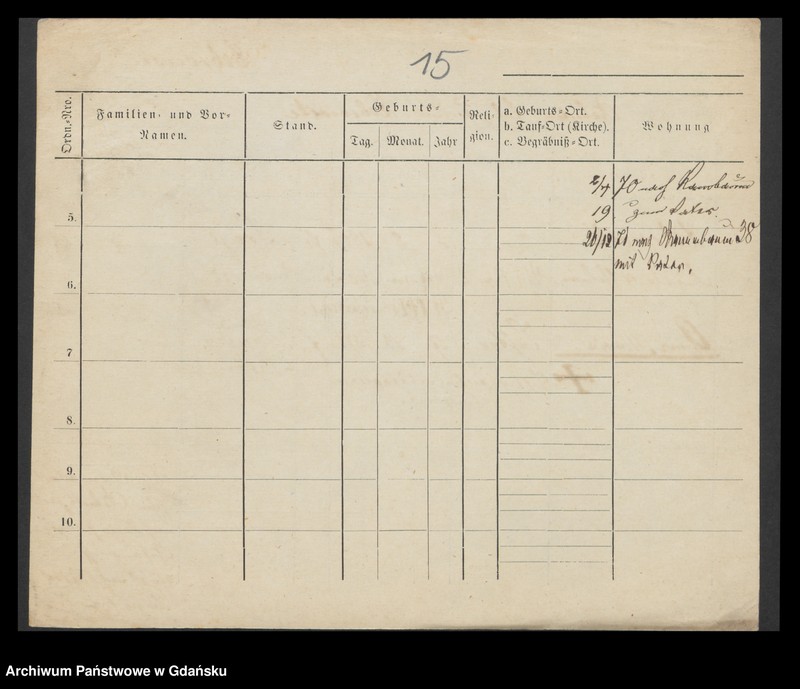 15
Ordn.-Nro.
Familien- und Vor-
Namen.
Stand.
Geburts-
Tag. Monat. Jahr
Reli-
gion.
a. Geburts-Ort.
b. Tauf-Ort (Kirche).
c. Begräbniß-Ort.
Wohnung
2/4 70 nach
19. zum Vater.
5.
26/12 71 nach 38
mit Vater.
6.
7
8.
9.
10.
Archiwum Państwowe w Gdańsku